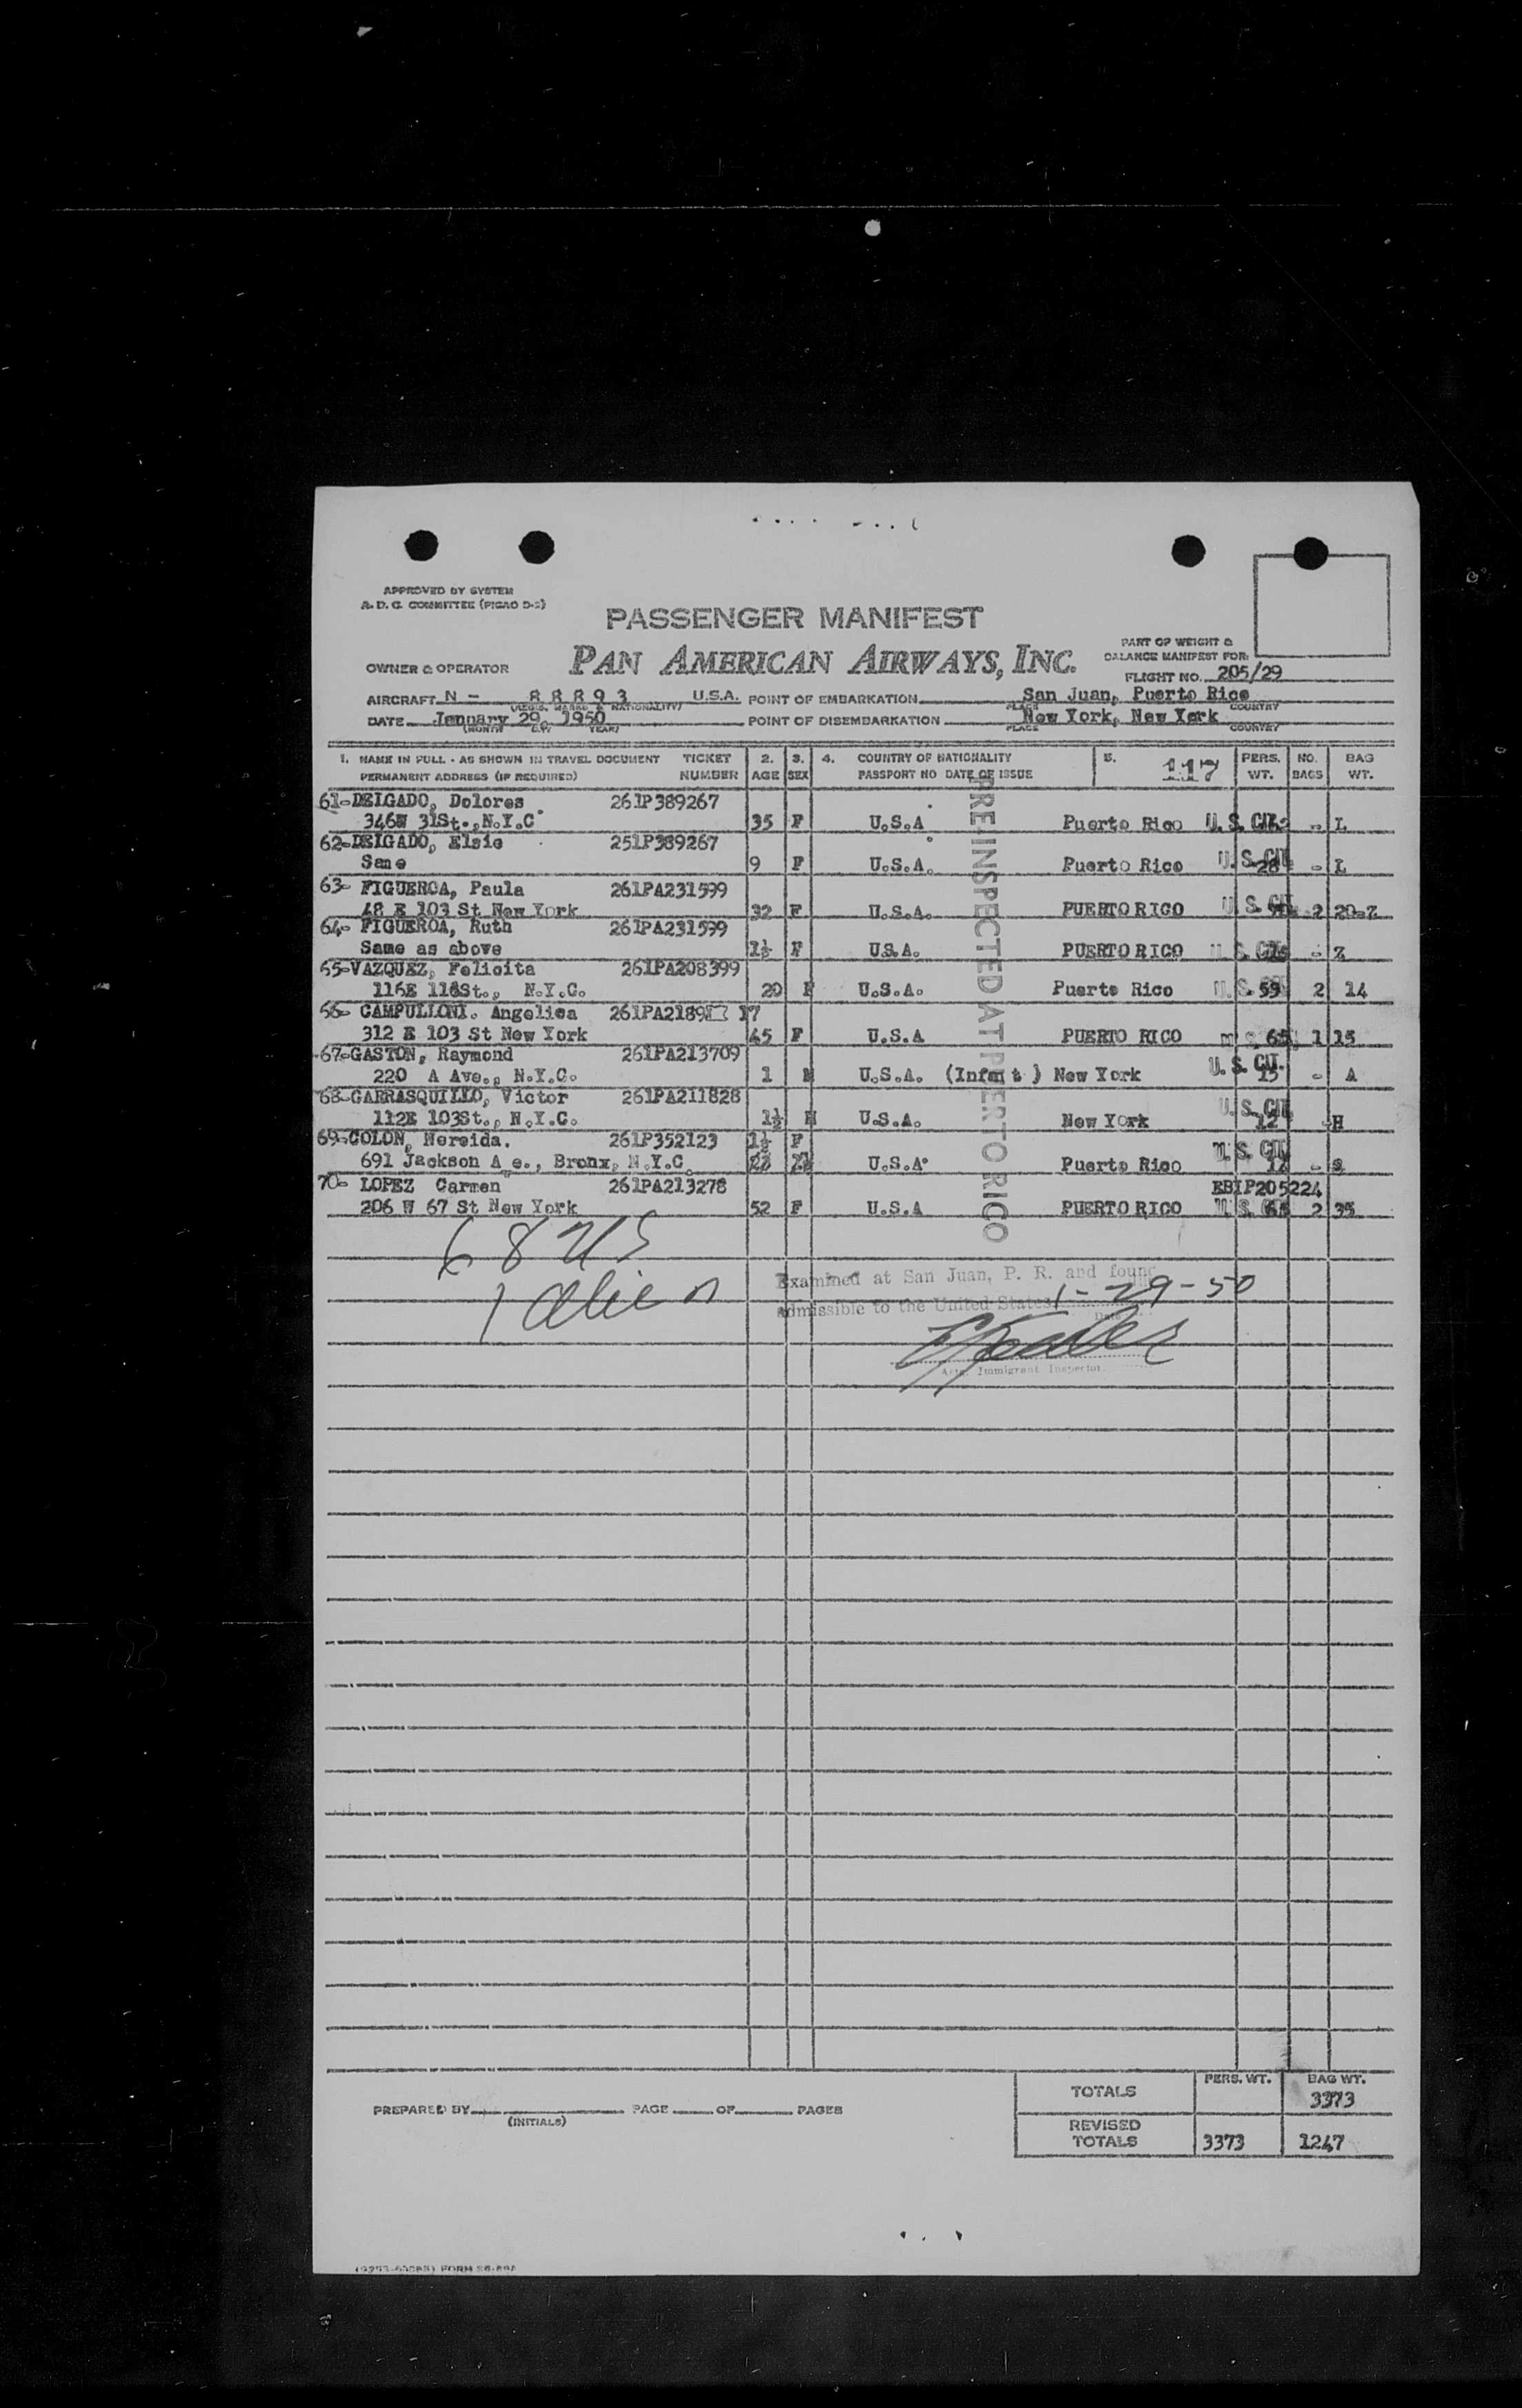 APPROVED BY SYSTEM
A. D. C. COMMITTEE (PICAO D-2)
PASSENGER MANIFEST
PAN AMERICAN AIRWAYS, INC.
PART OF WEIGHT &
BALANCE MANIFEST FOR:
OWNER & OPERATOR
FLIGHT NO. 205/29
AIRCRAFT N - 88893 U.S.A. POINT OF EMBARKATION San Juan, Puerto Rico
(REGIS. MARKS & NATIONALITY) PLACE COUNTRY
DATE January 29, 1950 POINT OF DISEMBARKATION New York, New York
(MONTH DAY YEAR) PLACE COUNTRY
1. NAME IN FULL - AS SHOWN IN TRAVEL DOCUMENT TICKET 2. 3. 4. COUNTRY OF NATIONALITY 5. 117 PERS. NO. BAG
PERMANENT ADDRESS (IF REQUIRED) NUMBER AGE SEX PASSPORT NO DATE OF ISSUE WT. BAGS WT.
61-DELGADO, Dolores 261P389267
346W 31St., N.Y.C 35 F U.S.A Puerto Rico U. S. CIT. - L
62-DELGADO, Elsie 251P389267
Same 9 F U.S.A. Puerto Rico U. S. CIT. 28 - L
63- FIGUEROA, Paula 261PA231599
48 E 103 St New York 32 F U.S.A. PUERTO RICO U. S. CIT. 2 20-Z
64- FIGUEROA, Ruth 261PA231599
Same as above 1½ F U.S.A. PUERTO RICO U. S. CIT. - Z
65-VAZQUEZ, Felicita 261PA208399
116E 118St., N.Y.C. 20 F U.S.A. Puerto Rico U. S. 59 2 14
66- CAMPULLONI. Angelica 261PA2189 17
312 E 103 St New York 45 F U.S.A PUERTO RICO 65 1 15
67-GASTON, Raymond 261PA213709
220 A Ave., N.Y.C. 1 M U.S.A. (Infant) New York U. S. CIT. 15 - A
68-CARRASQUILLO, Victor 261PA211828
112E 103St., N.Y.C. 1½ M U.S.A. New York U. S. CIT. 12 -H
69-COLON, Nereida. 261P352123 1½ F
691 Jackson A e., Bronx, N.Y.C. U.S.A. Puerto Rico U. S. CIT. 12 - S
70- LOPEZ Carmen 261PA213278 EBIP205224
206 W 67 St New York 52 F U.S.A PUERTO RICO U. S. 65 2 35
PRE-INSPECTED AT PUERTO RICO
68 US
1 alien
Examined at San Juan, P. R. and found
admissible to the United States 1-29-50
Date
Actg. Immigrant Inspector.
PERS. WT. BAG WT.
TOTALS 3373
PREPARED BY PAGE OF PAGES
(INITIALS)
REVISED
TOTALS 3373 1247